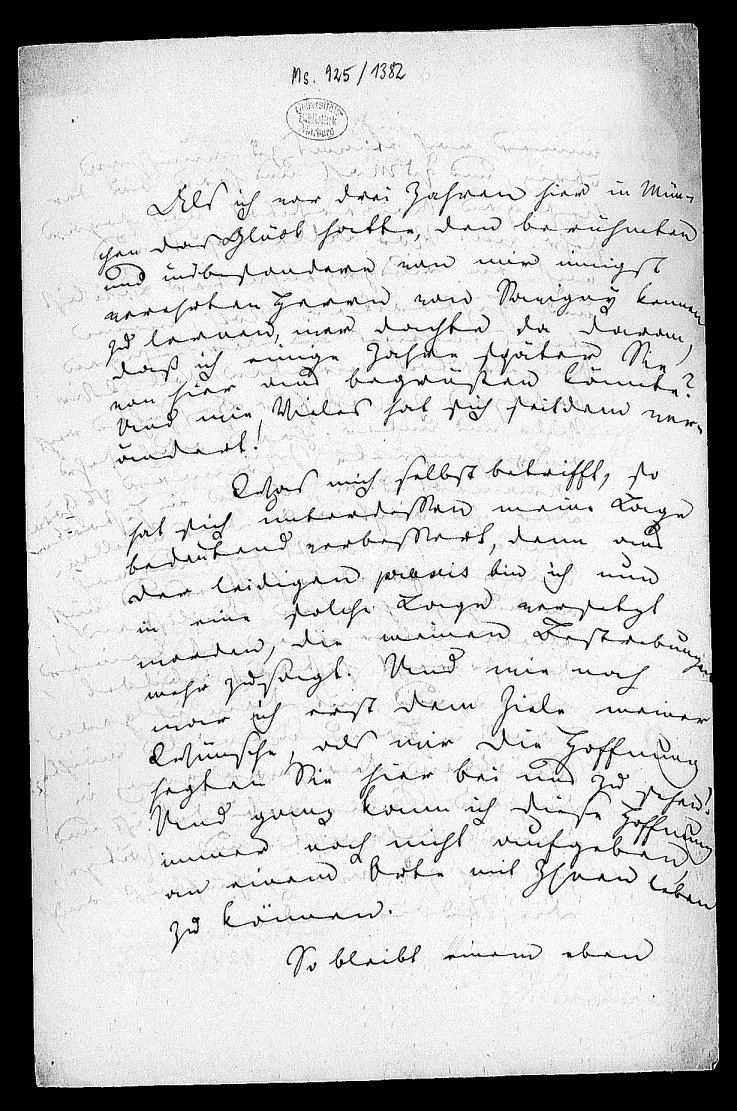 Ms. 925/1382
Universitäts
Bibliothek
Marburg
Als ich vor drei Jahren hier in Mün-
chen das Glück hatte, den berühmten
und insbesondere von mir innigst
verehrten Herrn von Savigny kennen
zu lernen, wer dachte da daran,
daß ich einige Jahre später Sie
von hier aus begrüßen könnte?
Und wie Vieles hat sich seitdem ver-
ändert!
Was mich selbst betrifft, so
hat sich unterdessen meine Lage
bedeutend verbessert, denn aus
der leidigen praxis bin ich nun
in eine solche Lage versetzt
worden, die meinen Bestrebungen
mehr zusagt. Und wie nah
war ich erst dem Ziele meiner
Wünsche, als wir die Hoffnung
hegten Sie hier bei uns zu sehen!
Und ganz kann ich diese Hoffnung
immer noch nicht aufgeben,
an einem Orte mit Ihnen leben
zu können.
So bleibt einem eben